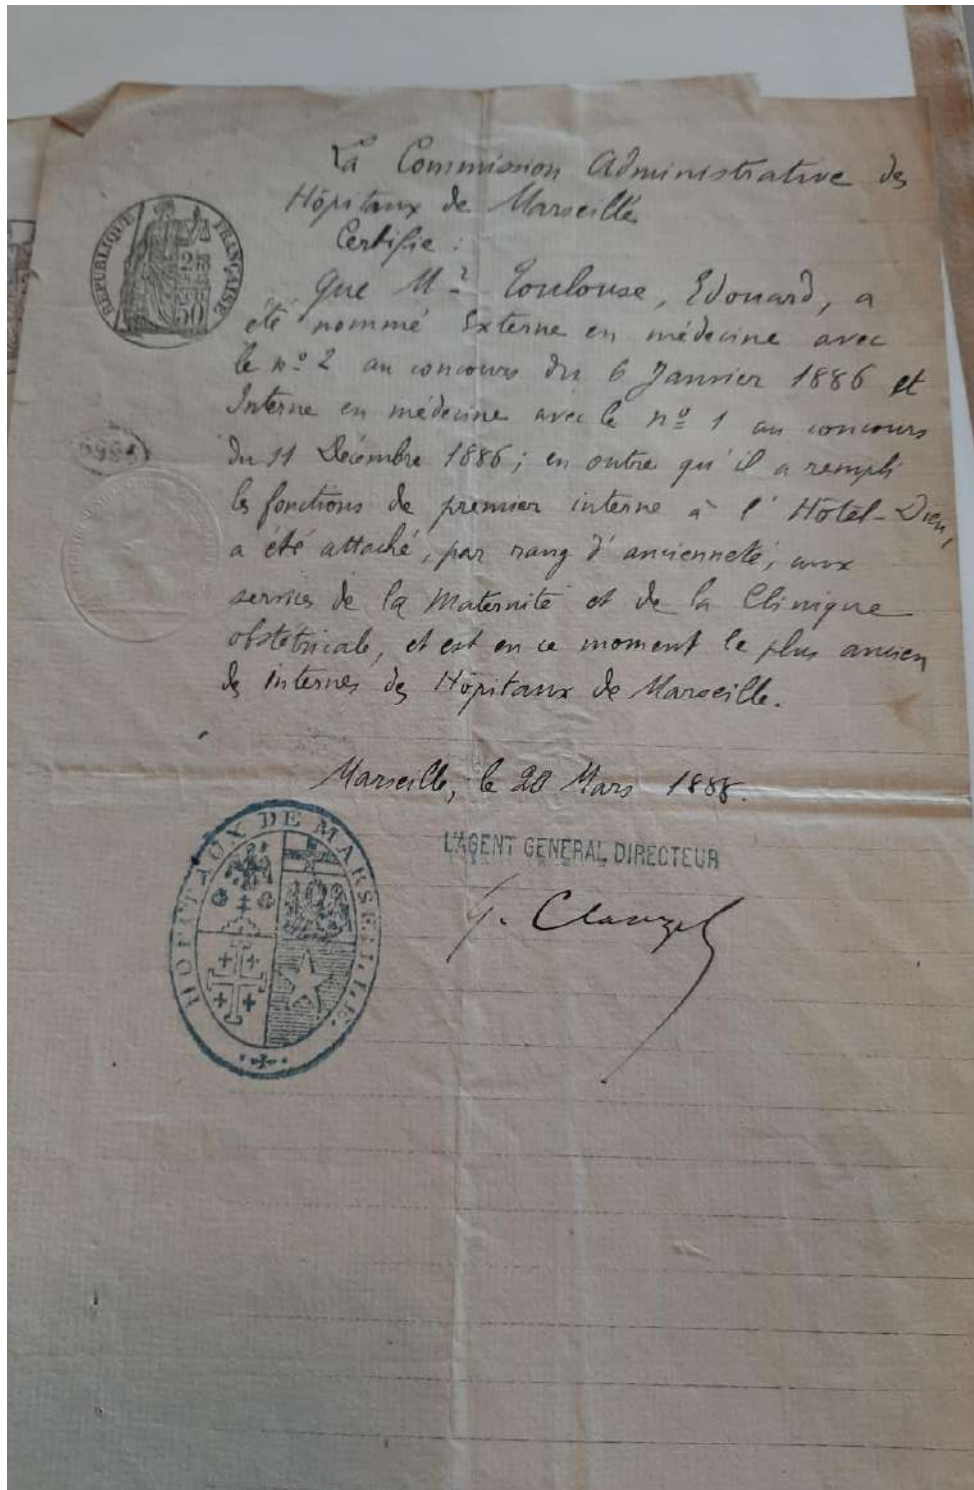 La Commission Administrative des
Hôpitaux de Marseille
Certifie :
que Mr Toulouse, Edouard, a
été nommé Externe en médecine avec
le nº 2 au concours du 6 Janvier 1886 et
Interne en médecine avec le nº 1 au concours
du 11 Décembre 1886 ; en outre qu'il a rempli
les fonctions de premier interne à l'Hôtel-Dieu,
a été attaché, par rang d'ancienneté, aux
services de la Maternité et de la Clinique
obstétricale, et est en ce moment le plus ancien
des internes des Hôpitaux de Marseille.
Marseille, le 20 Mars 1888.
L'AGENT GENERAL DIRECTEUR
G. Clauzel
RÉPUBLIQUE FRANÇAISE
HOPITAUX DE MARSEILLE.